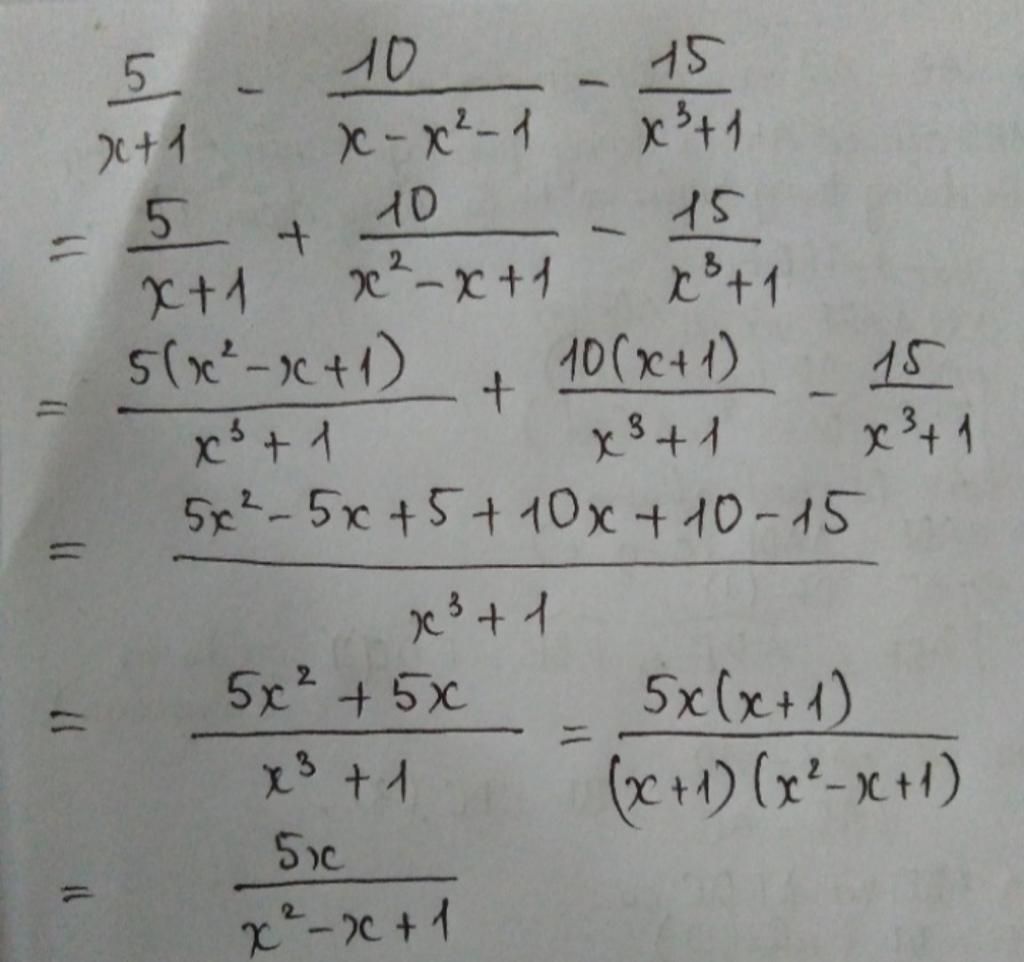 5/(x+1) - 10/(x - x² - 1) - 15/(x³ + 1)
= 5/(x+1) + 10/(x² - x + 1) - 15/(x³ + 1)
= 5(x² - x + 1)/(x³ + 1) + 10(x+1)/(x³ + 1) - 15/(x³ + 1)
= (5x² - 5x + 5 + 10x + 10 - 15)/(x³ + 1)
= (5x² + 5x)/(x³ + 1) = 5x(x+1)/((x+1)(x² - x + 1))
= 5x/(x² - x + 1)